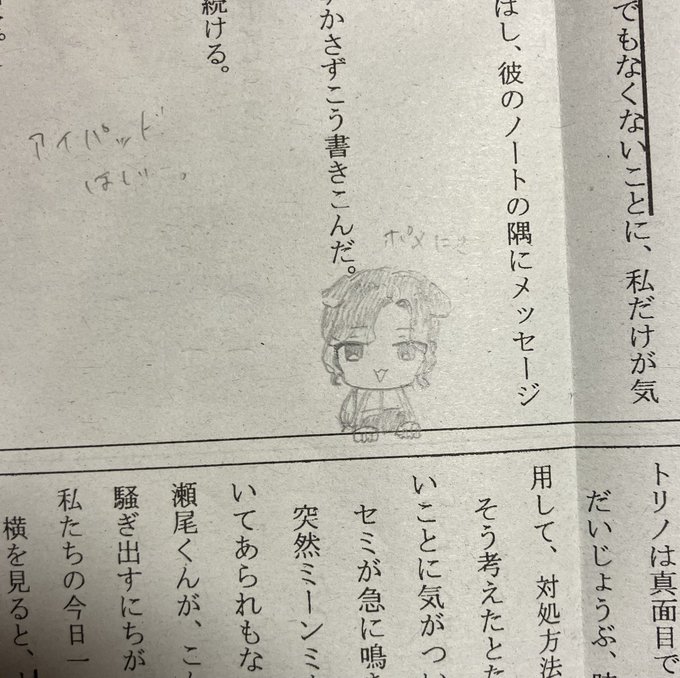 でもなくないことに、私だけが気
ばし、彼のノートの隅にメッセージ
すかさずこう書きこんだ。
続ける。
ポメにき
アイパッド
トリノは真面目で
だいじょうぶ、
用して、対処方法
そう考えたとた
いことに気がつい
セミが急に鳴き
突然ミーンミ
いてあられもな
瀬尾くんが、こ
騒ぎ出すにちが
私たちの今日一
横を見ると、